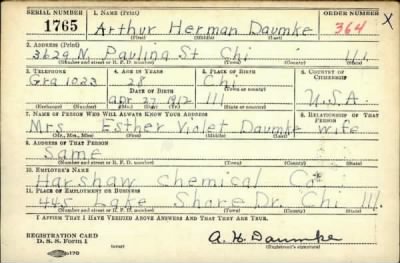 SERIAL NUMBER 1. NAME (Print) ORDER NUMBER
1765 Arthur Herman Daumke 364 X
(First) (Middle) (Last)
2. ADDRESS (Print)
3629 N. Paulina St Chi Ill.
(Number and street or R. F. D. number) (Town) (County) (State)
3. TELEPHONE 4. AGE IN YEARS 5. PLACE OF BIRTH 6. COUNTRY OF CITIZENSHIP
Gra 1022 28 Chi
DATE OF BIRTH (Town or county)
Apr 27 1912 Ill U.S.A.
(Exchange) (Number) (Mo.) (Day) (Yr.) (State or country)
7. NAME OF PERSON WHO WILL ALWAYS KNOW YOUR ADDRESS 8. RELATIONSHIP OF THAT PERSON
Mrs. Esther Violet Daumke wife
(Mr., Mrs., Miss) (First) (Middle) (Last)
9. ADDRESS OF THAT PERSON
Same
(Number and street or R. F. D. number) (Town) (County) (State)
10. EMPLOYER'S NAME
Harshaw Chemical Co
11. PLACE OF EMPLOYMENT OR BUSINESS
445 Lake Shore Dr. Chi Ill.
(Number and street or R. F. D. number) (Town) (County) (State)
I AFFIRM THAT I HAVE VERIFIED ABOVE ANSWERS AND THAT THEY ARE TRUE.
REGISTRATION CARD
D. S. S. Form 1 A. H. Daumke
(over) (Registrant's signature)